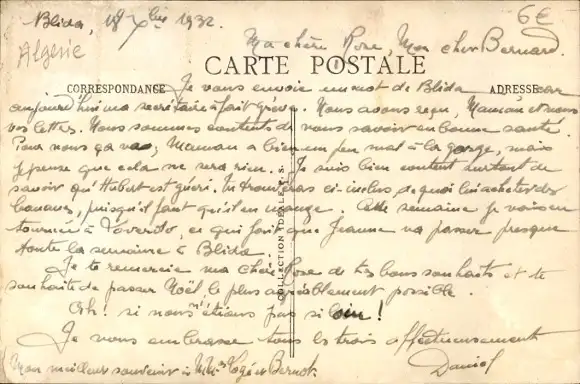 Blida, 18 Xbre 1932.
6€
Algérie
Ma chère Rose, Mon cher Bernard.
CARTE POSTALE
CORRESPONDANCE
ADRESSE
Je vous envoie un mot de Blida car
aujourd'hui ma secrétaire a fait grève. Nous avons reçu, Maman et nous
vos lettres. Nous sommes contents de vous savoir en bonne santé.
Pour nous ça va, Maman a bien un peu mal à la gorge, mais
je pense que cela ne sera rien. Je suis bien content surtout de
savoir qu'Hubert est guéri. Tu trouveras ci-inclus de quoi lui acheter des
bananes, puisqu'il faut qu'il en mange. Cette semaine je vais en
tournée à ce qui fait que Jeanne va passer presque
toute la semaine à Blida.
Je te remercie ma chère Rose de tes bons souhaits et te
souhaite de passer Noël le plus agréablement possible.
Ah! si nous n'étions pas si loin!
Je vous embrasse tous les trois affectueusement
Daniel
Mon meilleur souvenir à
COLLECTION IDÉALE